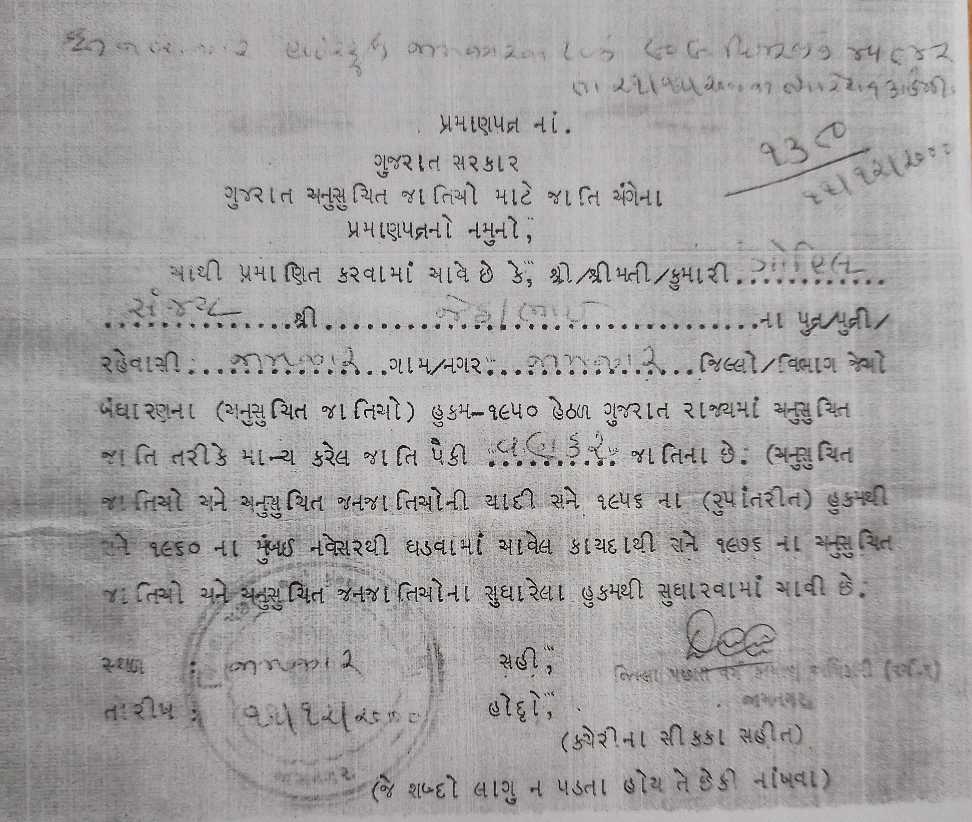 પ્રમાણપત્ર નાં.
૧૩૮
૧૨/૧૨/૨૦૦૦
ગુજરાત સરકાર
ગુજરાત અનુસુચિત જાતિઓ માટે જાતિ અંગેના
પ્રમાણપત્રનો નમુનો,
આથી પ્રમાણિત કરવામાં આવે છે કે, શ્રી/શ્રીમતી/કુમારી ગોહિલ
સંજય શ્રી જેઠાભાઈ ના પુત્ર/પુત્રી/
રહેવાસી: જામનગર ગામ/નગર: જામનગર જિલ્લો/વિભાગ જેઓ
બંધારણના (અનુસુચિત જાતિઓ) હુકમ-૧૯૫૦ હેઠળ ગુજરાત રાજ્યમાં અનુસુચિત
જાતિ તરીકે માન્ય કરેલ જાતિ પૈકી વણકર જાતિના છે: (અનુસુચિત
જાતિઓ અને અનુસુચિત જનજાતિઓની યાદી સને ૧૯૫૬ ના (રુપાંતરીત) હુકમથી
સને ૧૯૬૦ ના મુંબઈ નવેસરથી ઘડવામાં આવેલ કાયદાથી સને ૧૯૭૬ ના અનુસુચિત
જાતિઓ અને અનુસુચિત જનજાતિઓના સુધારેલા હુકમથી સુધારવામાં આવી છે:
સ્થળ : જામનગર સહી,
તારીખ : ૧૨/૧૨/૨૦૦૦ હોદ્દો,
જામનગર
(કચેરીના સીક્કા સહીત)
(જે શબ્દો લાગુ ન પડતા હોય તે છેકી નાંખવા)